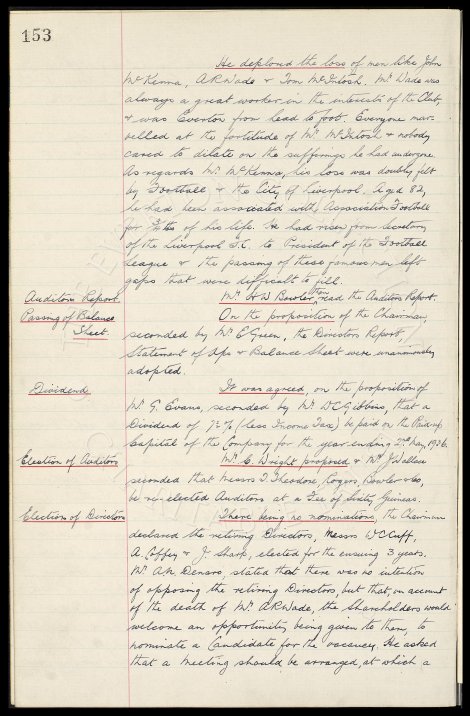 153
He deplored the loss of men like John
McKenna, A R Wade & Tom McIntosh. Mr Wade was
always a great worker in the interests of the Club,
& was Everton from head to foot. Everyone mar-
velled at the fortitude of Mr McIntosh & nobody
cared to dilate on the sufferings he had undergone.
As regards Mr McKenna, his loss was doubly felt
by Football & the City of Liverpool. Aged 82,
he had been associated with Association Football
for 3/4ths of his life. He had risen from Secretary
of the Liverpool F.C. to President of the Football
League & the passing of these famous men left
gaps that were difficult to fill.
Auditors Report. Mr H W Bowler then read the Auditors Report.
Passing of Balance On the proposition of the Chairman,
Sheet. seconded by Mr E Green, the Directors Report,
Statement of A/cs & Balance Sheet were unanimously
adopted.
Dividend It was agreed, on the proposition of
Mr G. Evans, seconded by Mr W C Gibbins, that a
Dividend of 7½% (less Income Tax) be paid on the Paid up
Capital of the Company for the year ending 2nd May, 1936.
Election of Auditors Mr C. Wright proposed & Mr J Wallace
seconded that Messrs T. Theodore, Rogers, Bowler & Co,
be re-elected Auditors at a Fee of Sixty Guineas.
Election of Directors There being no nominations, the Chairman
declared the retiring Directors, Messrs W C Cuff,
A. Coffey & J. Sharp, elected for the ensuing 3 years.
Mr A.N. Denaro, stated that there was no intention
of opposing the retiring Directors, but that, on account
of the death of Mr A R Wade, the Shareholders would
welcome an opportunity being given to them, to
nominate a Candidate for the vacancy. He asked
that a Meeting should be arranged, at which a